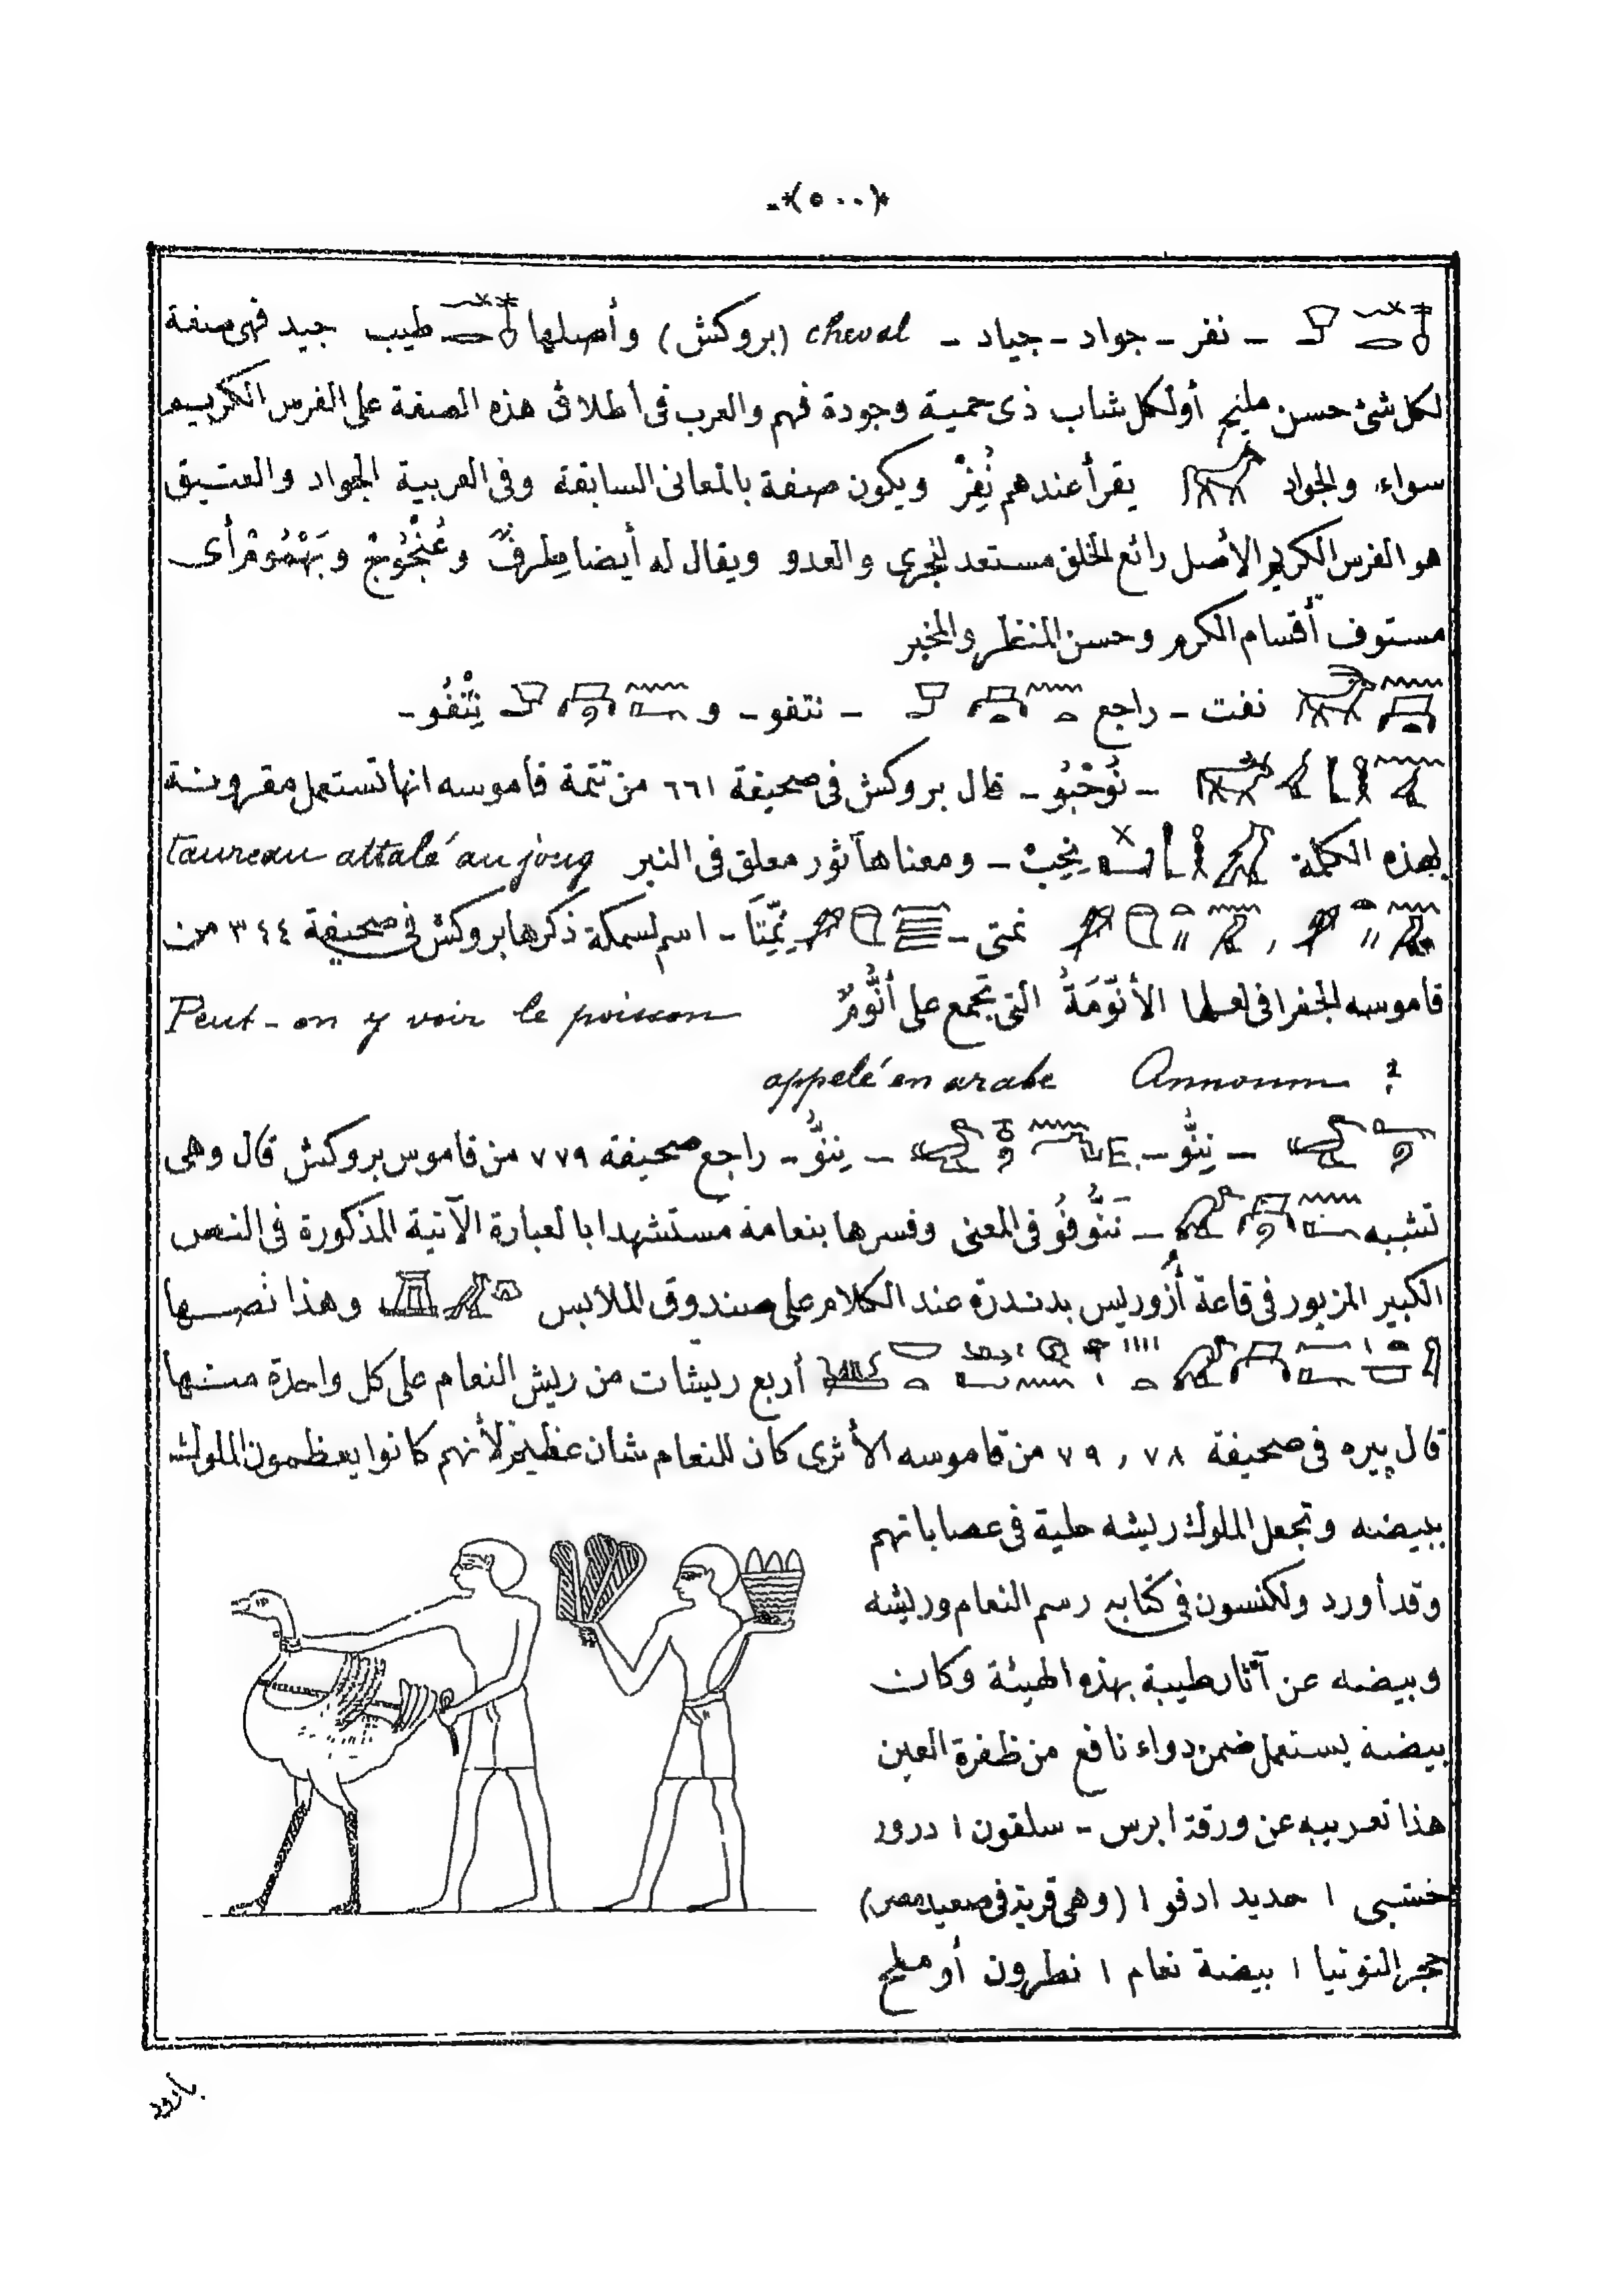 *(٥٠٠)*
ـ نفر ـ جواد ـ جياد ـ cheval (بروكش) وأصلها طيب جيد فهى صفة
لكل شئ حسن مليح أولكل شاب ذى حمية وجودة فهم والعرب فى أطلاق هذه الصفة على الفرس الكريم
سواء والجواد يقرأ عندهم نُفِرْ ويكون صفة بالمعانى السابقة وفى العربية الجواد والعتيق
هو الفرس الكريم الأصل رائع الخلق مستعد للجرى والعدو ويقال له أيضا طِرفٌ وعُنْجُوُجْ وبَهْمُومْ أى
مستوف أقسام الكرم وحسن المنظر والمخبر
نفت ـ راجع ـ نتفو ـ و نِتْفُو ـ
ـ نُوحْبُو ـ قال بروكش فى صحيفة ٦٦١ من تتمة قاموسه انها تستعمل مقرونة
بهذه الكلمة نِحِبْ ـ ومعناها ثور معلق فى النير taureau attalé au joug
, نمتى ـ نِمِّتَا ـ اسم لسمكة ذكرها بروكش فى صحيفة ٣٤٤ من
قاموسه الجغرافى لعلها الأنّومَةُ التى تجمع على أنُّومٌ Peut-on y voir le poisson
appelé en arabe Annoum ?
ـ نِنُّو ـ ـ نِنُّو ـ راجع صحيفة ٧٧٩ من قاموس بروكش قال وهى
تشبه ـ نَنُّوفُو فى المعنى وفسرها بنعامة مستشهدا بالعبارة الآتية المذكورة فى النص
الكبير المزبور فى قاعة أُزوريس بدندرة عند الكلام على صندوق الملابس وهذا نصها
أربع ريشات من ريش النعام على كل واحدة منها
قال پيره فى صحيفة ٧٨ , ٧٩ من قاموسه الأثرى كان للنعام شان عظيم لأنهم كانوا يعظمون الملوك
ببيضه وتجعل الملوك ريشه حلية فى عصاباتهم
وقد أورد ولكنسون فى كتابه رسم النعام وريشه
وبيضه عن آثار طيبة بهذه الهيئة وكان
بيضه يستعمل ضمن دواء نافع من ظفرة العين
هذا تعريبه عن ورقة ابرس ـ سلقون ١ درور
خشبى ١ حديد ادفو ١ (وهى قرية فى صعيد مصر)
حجر التوتيا ١ بيضة نعام ١ نطرون أو ملح
بارود